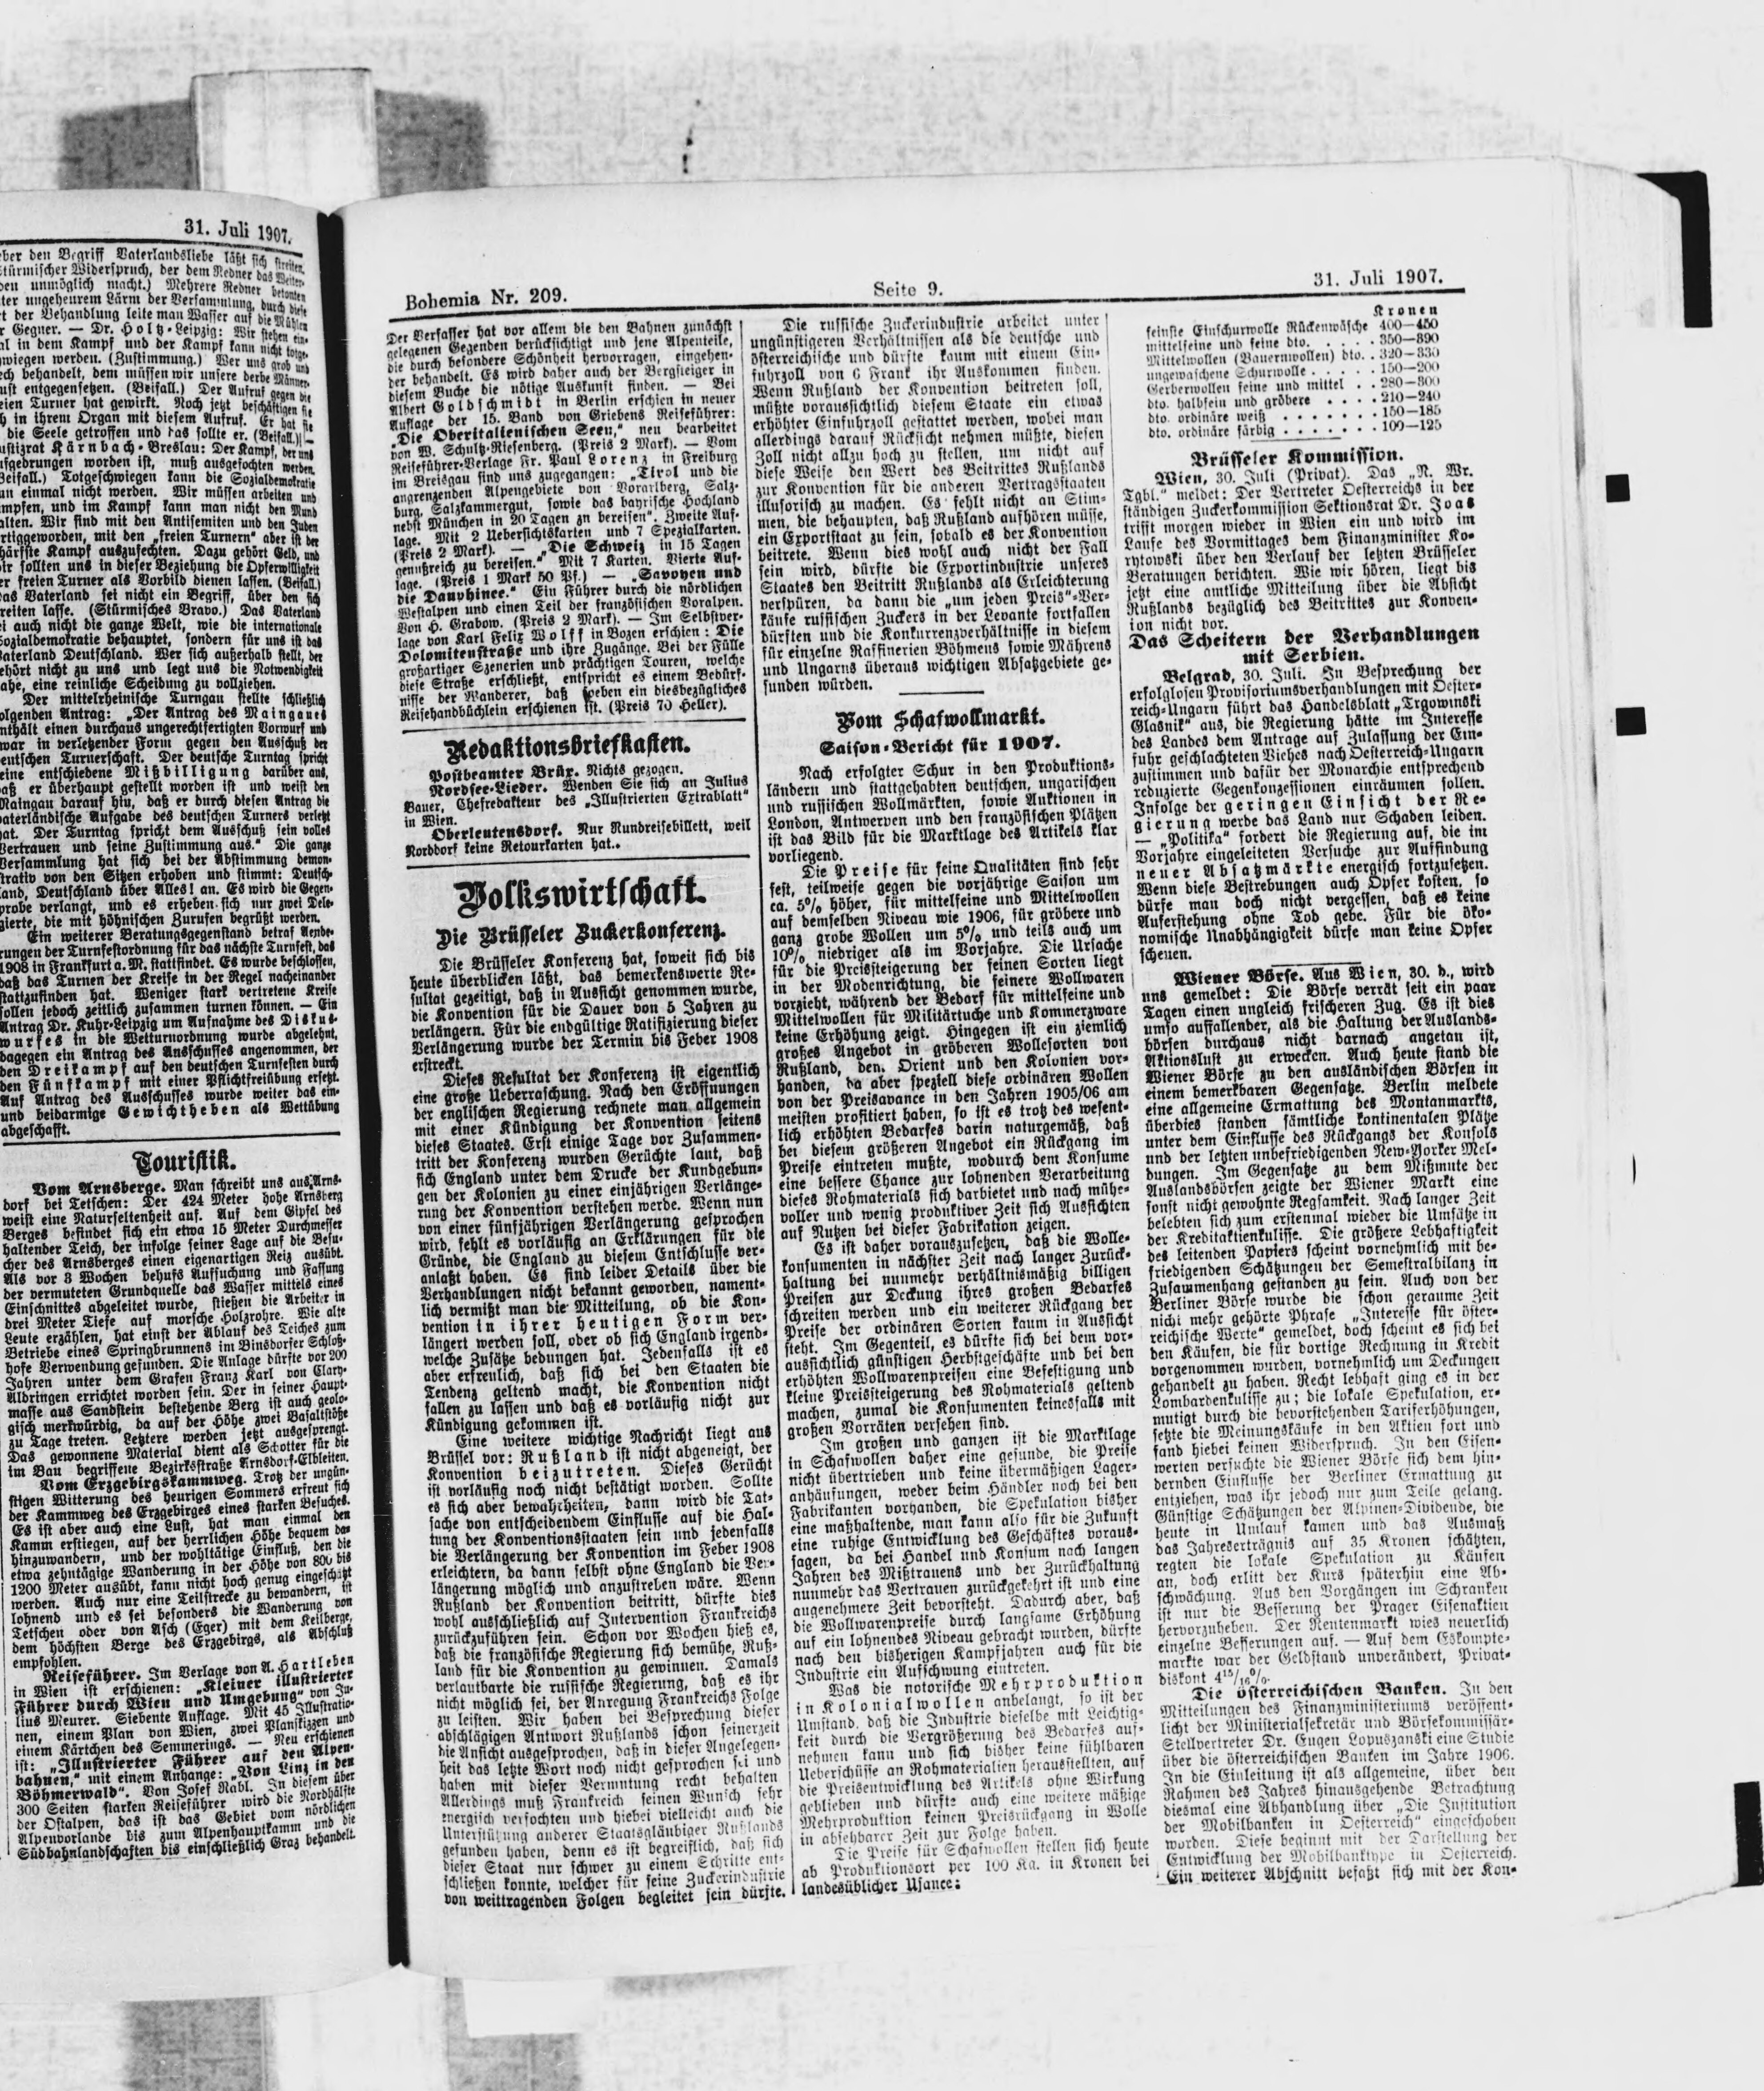 31. Juli 1907.
den Begriff Vaterlandsliebe läßt sich streiten.
türmischer Widerspruch, der dem Redner das
unmöglich macht.) Mehrere Redner betonten
ungeheurem Lärm der Versammlung, durch diese
der Behandlung leite man Wasser auf die Mühlen
Gegner. — Dr. Holtz-Leipzig: Wir stehen ein-
in dem Kampf und der Kampf kann nicht totge-
wiegen werden. (Zustimmung.) Wer uns grob und
behandelt, dem müssen wir unsere derbe Männer-
entgegensetzen. (Beifall.) Der Aufruf gegen die
Turner hat gewirkt. Noch jetzt beschäftigen sie
in ihrem Organ mit diesem Aufruf. Er hat sie
die Seele getroffen und das sollte er. (Beifall.) —
Kärnbach-Breslau: Der Kampf, der uns
worden ist, muß ausgefochten werden.
Totgeschwiegen kann die Sozialdemokratie
einmal nicht werden. Wir müssen arbeiten und
und im Kampf kann man nicht den Mund
Wir sind mit den Antisemiten und den Juden
mit den „freien Turnern“ aber ist der
Kampf auszufechten. Dazu gehört Geld, und
sollten uns in dieser Beziehung die Opferwilligkeit
freien Turner als Vorbild dienen lassen. (Beifall.)
Vaterland sei nicht ein Begriff, über den sich
lasse. (Stürmisches Bravo.) Das Vaterland
auch nicht die ganze Welt, wie die internationale
behauptet, sondern für uns ist das
Deutschland. Wer sich außerhalb stellt, der
nicht zu uns und legt uns die Notwendigkeit
eine reinliche Scheidung zu vollziehen.
Der mittelrheinische Turngau stellte schließlich
Antrag: „Der Antrag des Maingaues
einen durchaus ungerechtfertigten Vorwurf und
in verletzender Form gegen den Ausschuß der
Turnerschaft. Der deutsche Turntag spricht
entschiedene Mißbilligung darüber aus,
er überhaupt gestellt worden ist und weist den
Maingau darauf hin, daß er durch diesen Antrag die
vaterländische Aufgabe des deutschen Turners verletzt
hat. Der Turntag spricht dem Ausschuß sein volles
Vertrauen und seine Zustimmung aus.“ Die ganze
Versammlung hat sich bei der Abstimmung demon-
strativ von den Sitzen erhoben und stimmt: Deutsch-
land, Deutschland über Alles! an. Es wird die Gegen-
probe verlangt, und es erheben sich nur zwei Dele-
gierte, die mit höhnischen Zurufen begrüßt werden.
Ein weiterer Beratungsgegenstand betraf Aende-
rungen der Turnfestordnung für das nächste Turnfest, das
1908 in Frankfurt a. M. stattfindet. Es wurde beschlossen,
daß das Turnen der Kreise in der Regel nacheinander
stattzufinden hat. Weniger stark vertretene Kreise
sollen jedoch zeitlich zusammen turnen können. — Ein
Antrag Dr. Kuhr-Leipzig um Aufnahme des Diskus-
wurfes in die Wetturnordnung wurde abgelehnt,
dagegen ein Antrag des Ausschusses angenommen, der
den Dreikampf auf den deutschen Turnfesten durch
den Fünfkampf mit einer Pflichtfreiübung ersetzt.
Auf Antrag des Ausschusses wurde weiter das ein-
und beidarmige Gewichtheben als Wettübung
abgeschafft.
Touristik.
Vom Arnsberge. Man schreibt uns aus Arns-
dorf bei Tetschen: Der 424 Meter hohe Arnsberg
weist eine Naturseltenheit auf. Auf dem Gipfel des
Berges befindet sich ein etwa 15 Meter Durchmesser
haltender Teich, der infolge seiner Lage auf die Besu-
cher des Arnsberges einen eigenartigen Reiz ausübt.
Als vor 3 Wochen behufs Aufsuchung und Fassung
der vermuteten Grundquelle das Wasser mittels eines
Einschnittes abgeleitet wurde, stießen die Arbeiter in
drei Meter Tiefe auf morsche Holzrohre. Wie alte
Leute erzählen, hat einst der Ablauf des Teiches zum
Betriebe eines Springbrunnens im Binsdorfer Schloß-
hofe Verwendung gefunden. Die Anlage dürfte vor 200
Jahren unter dem Grafen Franz Karl von Clary-
Aldringen errichtet worden sein. Der in seiner Haupt-
masse aus Sandstein bestehende Berg ist auch geolo-
gisch merkwürdig, da auf der Höhe zwei Basaltstöße
zu Tage treten. Letztere werden jetzt ausgesprengt.
Das gewonnene Material dient als Schotter für die
im Bau begriffene Bezirksstraße Arnsdorf-Elbleiten.
Vom Erzgebirgskammweg. Trotz der ungün-
stigen Witterung des heurigen Sommers erfreut sich
der Kammweg des Erzgebirges eines starken Besuches.
Es ist aber auch eine Lust, hat man einmal den
Kamm erstiegen, auf der herrlichen Höhe bequem da-
hinzuwandern, und der wohltätige Einfluß, den die
etwa zehntägige Wanderung in der Höhe von 800 bis
1200 Meter ausübt, kann nicht hoch genug eingeschätzt
werden. Auch nur eine Teilstrecke zu bewandern, ist
lohnend und es sei besonders die Wanderung von
Tetschen oder von Asch (Eger) mit dem Keilberge,
dem höchsten Berge des Erzgebirgs, als Abschluß
empfohlen.
Reiseführer. Im Verlage von A. Hartleben
in Wien ist erschienen: „Kleiner illustrierter
Führer durch Wien und Umgebung“ von Ju-
lius Meurer. Siebente Auflage. Mit 45 Illustratio-
nen, einem Plan von Wien, zwei Planskizzen und
einem Kärtchen des Semmerings. — Neu erschienen
ist: „Illustrierter Führer auf den Alpen-
bahnen,“ mit einem Anhange: „Von Linz in den
Böhmerwald“. Von Josef Rabl. In diesem über
300 Seiten starken Reiseführer wird die Nordhälfte
der Ostalpen, das ist das Gebiet vom nördlichen
Alpenvorlande bis zum Alpenhauptkamm und die
Südbahnlandschaften bis einschließlich Graz behandelt.
Bohemia Nr. 209.
Seite 9.
31. Juli 1907.
Der Verfasser hat vor allem die den Bahnen zunächst
gelegenen Gegenden berücksichtigt und jene Alpenteile,
die durch besondere Schönheit hervorragen, eingehen-
der behandelt. Es wird daher auch der Bergsteiger in
diesem Buche die nötige Auskunft finden. — Bei
Albert Goldschmidt in Berlin erschien in neuer
Auflage der 15. Band von Griebens Reiseführer:
„Die Oberitalienischen Seen,“ neu bearbeitet
von W. Schultz-Riesenberg. (Preis 2 Mark). — Vom
Reiseführer-Verlage Fr. Paul Lorenz in Freiburg
im Breisgau sind uns zugegangen: „Tirol und die
angrenzenden Alpengebiete von Vorarlberg, Salz-
burg, Salzkammergut, sowie das bayrische Hochland
nebst München in 20 Tagen zu bereisen“. Zweite Auf-
lage. Mit 2 Uebersichtskarten und 7 Spezialkarten.
(Preis 2 Mark). — „Die Schweiz in 15 Tagen
genußreich zu bereisen.“ Mit 7 Karten. Vierte Auf-
lage. (Preis 1 Mark 50 Pf.) — „Savoyen und
die Dauphinee.“ Ein Führer durch die nördlichen
Westalpen und einen Teil der französischen Voralpen.
Von H. Grabow. (Preis 2 Mark). — Im Selbstver-
lage von Karl Felix Wolff in Bozen erschien: Die
Dolomitenstraße und ihre Zugänge. Bei der Fülle
großartiger Szenerien und prächtigen Touren, welche
diese Straße erschließt, entspricht es einem Bedürf-
nisse der Wanderer, daß soeben ein diesbezügliches
Reisehandbüchlein erschienen ist. (Preis 70 Heller).
Redaktionsbriefkasten.
Postbeamter Brüx. Nichts gezogen.
Nordsee-Lieder. Wenden Sie sich an Julius
Bauer, Chefredakteur des „Illustrierten Extrablatt“
in Wien.
Oberleutensdorf. Nur Rundreisebillett, weil
Norddorf keine Retourkarten hat..
Volkswirtschaft.
Die Brüsseler Zuckerkonferenz.
Die Brüsseler Konferenz hat, soweit sich bis
heute überblicken läßt, das bemerkenswerte Re-
sultat gezeitigt, daß in Aussicht genommen wurde,
die Konvention für die Dauer von 5 Jahren zu
verlängern. Für die endgültige Ratifizierung dieser
Verlängerung wurde der Termin bis Feber 1908
erstreckt.
Dieses Resultat der Konferenz ist eigentlich
eine große Ueberraschung. Nach den Eröffnungen
der englischen Regierung rechnete man allgemein
mit einer Kündigung der Konvention seitens
dieses Staates. Erst einige Tage vor Zusammen-
tritt der Konferenz wurden Gerüchte laut, daß
sich England unter dem Drucke der Kundgebun-
gen der Kolonien zu einer einjährigen Verlänge-
rung der Konvention verstehen werde. Wenn nun
von einer fünfjährigen Verlängerung gesprochen
wird, fehlt es vorläufig an Erklärungen für die
Gründe, die England zu diesem Entschlusse ver-
anlaßt haben. Es sind leider Details über die
Verhandlungen nicht bekannt geworden, nament-
lich vermißt man die Mitteilung, ob die Kon-
vention in ihrer heutigen Form ver-
längert werden soll, oder ob sich England irgend-
welche Zusätze bedungen hat. Jedenfalls ist es
aber erfreulich, daß sich bei den Staaten die
Tendenz geltend macht, die Konvention nicht
fallen zu lassen und daß es vorläufig nicht zur
Kündigung gekommen ist.
Eine weitere wichtige Nachricht liegt aus
Brüssel vor: Rußland ist nicht abgeneigt, der
Konvention beizutreten. Dieses Gerücht
ist vorläufig noch nicht bestätigt worden. Sollte
es sich aber bewahrheiten, dann wird die Tat-
sache von entscheidendem Einflusse auf die Hal-
tung der Konventionsstaaten sein und jedenfalls
die Verlängerung der Konvention im Feber 1908
erleichtern, da dann selbst ohne England die Ver-
längerung möglich und anzustreben wäre. Wenn
Rußland der Konvention beitritt, dürfte dies
wohl ausschließlich auf Intervention Frankreichs
zurückzuführen sein. Schon vor Wochen hieß es,
daß die französische Regierung sich bemühe, Ruß-
land für die Konvention zu gewinnen. Damals
verlautbarte die russische Regierung, daß es ihr
nicht möglich sei, der Anregung Frankreichs Folge
zu leisten. Wir haben bei Besprechung dieser
abschlägigen Antwort Rußlands schon seinerzeit
die Ansicht ausgesprochen, daß in dieser Angelegen-
heit das letzte Wort noch nicht gesprochen sei und
haben mit dieser Vermutung recht behalten
Allerdings muß Frankreich seinen Wunsch sehr
energisch verfochten und hiebei vielleicht auch die
Unterstützung anderer Staatsgläubiger Rußlands
gefunden haben, denn es ist begreiflich, daß sich
dieser Staat nur schwer zu einem Schritte ent-
schließen konnte, welcher für seine Zuckerindustrie
von weittragenden Folgen begleitet sein dürfte.
Die russische Zuckerindustrie arbeitet unter
ungünstigeren Verhältnissen als die deutsche und
österreichische und dürfte kaum mit einem Ein-
fuhrzoll von 6 Frank ihr Auskommen finden.
Wenn Rußland der Konvention beitreten soll,
müßte voraussichtlich diesem Staate ein etwas
erhöhter Einfuhrzoll gestattet werden, wobei man
allerdings darauf Rücksicht nehmen müßte, diesen
Zoll nicht allzu hoch zu stellen, um nicht auf
diese Weise den Wert des Beitrittes Rußlands
zur Konvention für die anderen Vertragsstaaten
illusorisch zu machen. Es fehlt nicht an Stim-
men, die behaupten, daß Rußland aufhören müsse,
ein Exportstaat zu sein, sobald es der Konvention
beitrete. Wenn dies wohl auch nicht der Fall
sein wird, dürfte die Exportindustrie unseres
Staates den Beitritt Rußlands als Erleichterung
verspüren, da dann die „um jeden Preis“-Ver-
käufe russischen Zuckers in der Levante fortfallen
dürften und die Konkurrenzverhältnisse in diesem
für einzelne Raffinerien Böhmens sowie Mährens
und Ungarns überaus wichtigen Absatzgebiete ge-
sunden würden.
Vom Schafwollmarkt.
Saison-Bericht für 1907.
Nach erfolgter Schur in den Produktions-
ländern und stattgehabten deutschen, ungarischen
und russischen Wollmärkten, sowie Auktionen in
London, Antwerpen und den französischen Plätzen
ist das Bild für die Marktlage des Artikels klar
vorliegend.
Die Preise für feine Qualitäten sind sehr
fest, teilweise gegen die vorjährige Saison um
ca. 5% höher, für mittelfeine und Mittelwollen
auf demselben Niveau wie 1906, für gröbere und
ganz grobe Wollen um 5% und teils auch um
10% niedriger als im Vorjahre. Die Ursache
für die Preissteigerung der feinen Sorten liegt
in der Modenrichtung, die feinere Wollwaren
vorzieht, während der Bedarf für mittelfeine und
Mittelwollen für Militärtuche und Kommerzware
keine Erhöhung zeigt. Hingegen ist ein ziemlich
großes Angebot in gröberen Wollesorten von
Rußland, den Orient und den Kolonien vor-
handen, da aber speziell diese ordinären Wollen
von der Preisavance in den Jahren 1905/06 am
meisten profitiert haben, so ist es trotz des wesent-
lich erhöhten Bedarfes darin naturgemäß, daß
bei diesem größeren Angebot ein Rückgang im
Preise eintreten mußte, wodurch dem Konsume
eine bessere Chance zur lohnenden Verarbeitung
dieses Rohmaterials sich darbietet und nach mühe-
voller und wenig produktiver Zeit sich Aussichten
auf Nutzen bei dieser Fabrikation zeigen.
Es ist daher vorauszusetzen, daß die Wolle-
konsumenten in nächster Zeit nach langer Zurück-
haltung bei nunmehr verhältnismäßig billigen
Preisen zur Deckung ihres großen Bedarfes
schreiten werden und ein weiterer Rückgang der
Preise der ordinären Sorten kaum in Aussicht
steht. Im Gegenteil, es dürfte sich bei dem vor-
aussichtlich günstigen Herbstgeschäfte und bei den
erhöhten Wollwarenpreisen eine Befestigung und
kleine Preissteigerung des Rohmaterials geltend
machen, zumal die Konsumenten keinesfalls mit
großen Vorräten versehen sind.
Im großen und ganzen ist die Marktlage
in Schafwollen daher eine gesunde, die Preise
nicht übertrieben und keine übermäßigen Lager-
anhäufungen, weder beim Händler noch bei den
Fabrikanten vorhanden, die Spekulation bisher
eine maßhaltende, man kann also für die Zukunft
eine ruhige Entwicklung des Geschäftes voraus-
sagen, da bei Handel und Konsum nach langen
Jahren des Mißtrauens und der Zurückhaltung
nunmehr das Vertrauen zurückgekehrt ist und eine
angenehmere Zeit bevorsteht. Dadurch aber, daß
die Wollwarenpreise durch langsame Erhöhung
auf ein lohnendes Niveau gebracht wurden, dürfte
nach den bisherigen Kampfjahren auch für die
Industrie ein Aufschwung eintreten.
Was die notorische Mehrproduktion
in Kolonialwollen anbelangt, so ist der
Umstand, daß die Industrie dieselbe mit Leichtig-
keit durch die Vergrößerung des Bedarfes auf-
nehmen kann und sich bisher keine fühlbaren
Ueberschüsse an Rohmaterialien herausstellten, auf
die Preisentwicklung des Artikels ohne Wirkung
geblieben und dürfte auch eine weitere mäßige
Mehrproduktion keinen Preisrückgang in Wolle
in absehbarer Zeit zur Folge haben.
Die Preise für Schafwollen stellen sich heute
ab Produktionsort per 100 Kg. in Kronen bei
landesüblicher Usance:
Kronen
feinste Einschurwolle Rückenwäsche 400—450
mittelfeine und feine dto. . . . . . 350—390
Mittelwollen (Bauernwollen) dto. . 320—330
ungewaschene Schurwolle . . . . . 150—200
Gerberwollen feine und mittel . . 280—300
dto. halbfein und gröbere . . . . 210—240
dto. ordinäre weiß . . . . . . . 150—185
dto. ordinäre färbig . . . . . . . 100—125
Brüsseler Kommission.
Wien, 30. Juli (Privat). Das „N. Wr.
Tgbl.“ meldet: Der Vertreter Oesterreichs in der
ständigen Zuckerkommission Sektionsrat Dr. Joas
trifft morgen wieder in Wien ein und wird im
Laufe des Vormittages dem Finanzminister Ko-
rytowski über den Verlauf der letzten Brüsseler
Beratungen berichten. Wie wir hören, liegt bis
jetzt eine amtliche Mitteilung über die Absicht
Rußlands bezüglich des Beitrittes zur Konven-
ion nicht vor.
Das Scheitern der Verhandlungen
mit Serbien.
Belgrad, 30. Juli. In Besprechung der
erfolglosen Provisoriumsverhandlungen mit Oester-
reich-Ungarn führt das Handelsblatt „Trgowinski
Glasnik“ aus, die Regierung hätte im Interesse
des Landes dem Antrage auf Zulassung der Ein-
fuhr geschlachteten Viehes nach Oesterreich-Ungarn
zustimmen und dafür der Monarchie entsprechend
reduzierte Gegenkonzessionen einräumen sollen.
Infolge der geringen Einsicht der Re-
gierung werde das Land nur Schaden leiden.
— „Politika“ fordert die Regierung auf, die im
Vorjahre eingeleiteten Versuche zur Auffindung
neuer Absatzmärkte energisch fortzusetzen.
Wenn diese Bestrebungen auch Opfer kosten, so
dürfe man doch nicht vergessen, daß es keine
Auferstehung ohne Tod gebe. Für die öko-
nomische Unabhängigkeit dürfe man keine Opfer
scheuen.
Wiener Börse. Aus Wien, 30. d., wird
uns gemeldet: Die Börse verrät seit ein paar
Tagen einen ungleich frischeren Zug. Es ist dies
umso auffallender, als die Haltung der Auslands-
börsen durchaus nicht darnach angetan ist,
Aktionslust zu erwecken. Auch heute stand die
Wiener Börse zu den ausländischen Börsen in
einem bemerkbaren Gegensatze. Berlin meldete
eine allgemeine Ermattung des Montanmarkts,
überdies standen sämtliche kontinentalen Plätze
unter dem Einflusse des Rückgangs der Konsols
und der letzten unbefriedigenden New-Yorker Mel-
dungen. Im Gegensatze zu dem Mißmute der
Auslandsbörsen zeigte der Wiener Markt eine
sonst nicht gewohnte Regsamkeit. Nach langer Zeit
belebten sich zum erstenmal wieder die Umsätze in
der Kreditaktienkulisse. Die größere Lebhaftigkeit
des leitenden Papiers scheint vornehmlich mit be-
friedigenden Schätzungen der Semestralbilanz in
Zusammenhang gestanden zu sein. Auch von der
Berliner Börse wurde die schon geraume Zeit
nicht mehr gehörte Phrase „Interesse für öster-
reichische Werte“ gemeldet, doch scheint es sich bei
den Käufen, die für dortige Rechnung in Kredit
vorgenommen wurden, vornehmlich um Deckungen
gehandelt zu haben. Recht lebhaft ging es in der
Lombardenkulisse zu; die lokale Spekulation, er-
mutigt durch die bevorstehenden Tariferhöhungen,
setzte die Meinungskäufe in den Aktien fort und
fand hiebei keinen Widerspruch. In den Eisen-
werten versuchte die Wiener Börse sich dem hin-
dernden Einflusse der Berliner Ermattung zu
entziehen, was ihr jedoch nur zum Teile gelang.
Günstige Schätzungen der Alpinen-Dividende, die
heute in Umlauf kamen und das Ausmaß
das Jahreserträgnis auf 35 Kronen schätzten,
regten die lokale Spekulation zu Käufen
an, doch erlitt der Kurs späterhin eine Ab-
schwächung. Aus den Vorgängen im Schranken
ist nur die Besserung der Prager Eisenaktien
hervorzuheben. Der Rentenmarkt wies neuerlich
einzelne Besserungen auf. — Auf dem Eskompte-
markte war der Geldstand unverändert, Privat-
diskont 4¹⁵/₁₆%.
Die österreichischen Banken. In den
Mitteilungen des Finanzministeriums veröffent-
licht der Ministerialsekretär und Börsekommissär-
Stellvertreter Dr. Eugen Lopuszanski eine Studie
über die österreichischen Banken im Jahre 1906.
In die Einleitung ist als allgemeine, über den
Rahmen des Jahres hinausgehende Betrachtung
diesmal eine Abhandlung über „Die Institution
der Mobilbanken in Oesterreich“ eingeschoben
worden. Diese beginnt mit der Darstellung der
Entwicklung der Mobilbanktype in Oesterreich.
Ein weiterer Abschnitt befaßt sich mit der Kon-